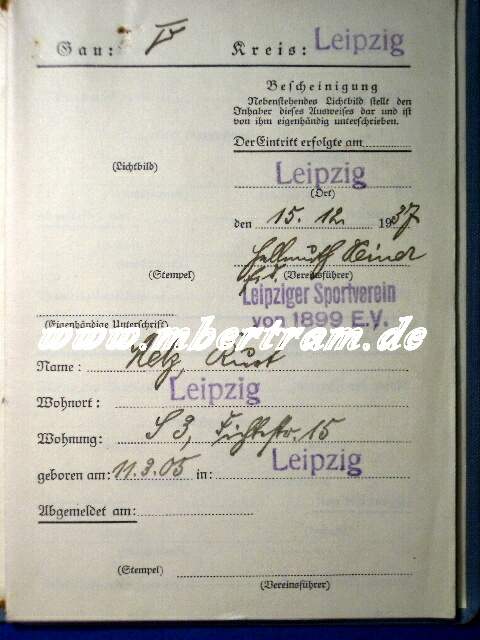 Gau: V Kreis: Leipzig
Bescheinigung
Nebenstehendes Lichtbild stellt den
Inhaber dieses Ausweises dar und ist
von ihm eigenhändig unterschrieben.
Der Eintritt erfolgte am
(Lichtbild)
Leipzig
(Ort)
den 15. 12 1937
Hellmuth
(Stempel) (Vereinsführer)
Leipziger Sportverein
von 1899 E.V.
(Eigenhändige Unterschrift)
www.mbertram.de
Name: Kurt
Wohnort: Leipzig
Wohnung: S 3, Fichtestr. 15
geboren am: 11.3.05 in: Leipzig
Abgemeldet am:
(Stempel)
(Vereinsführer)